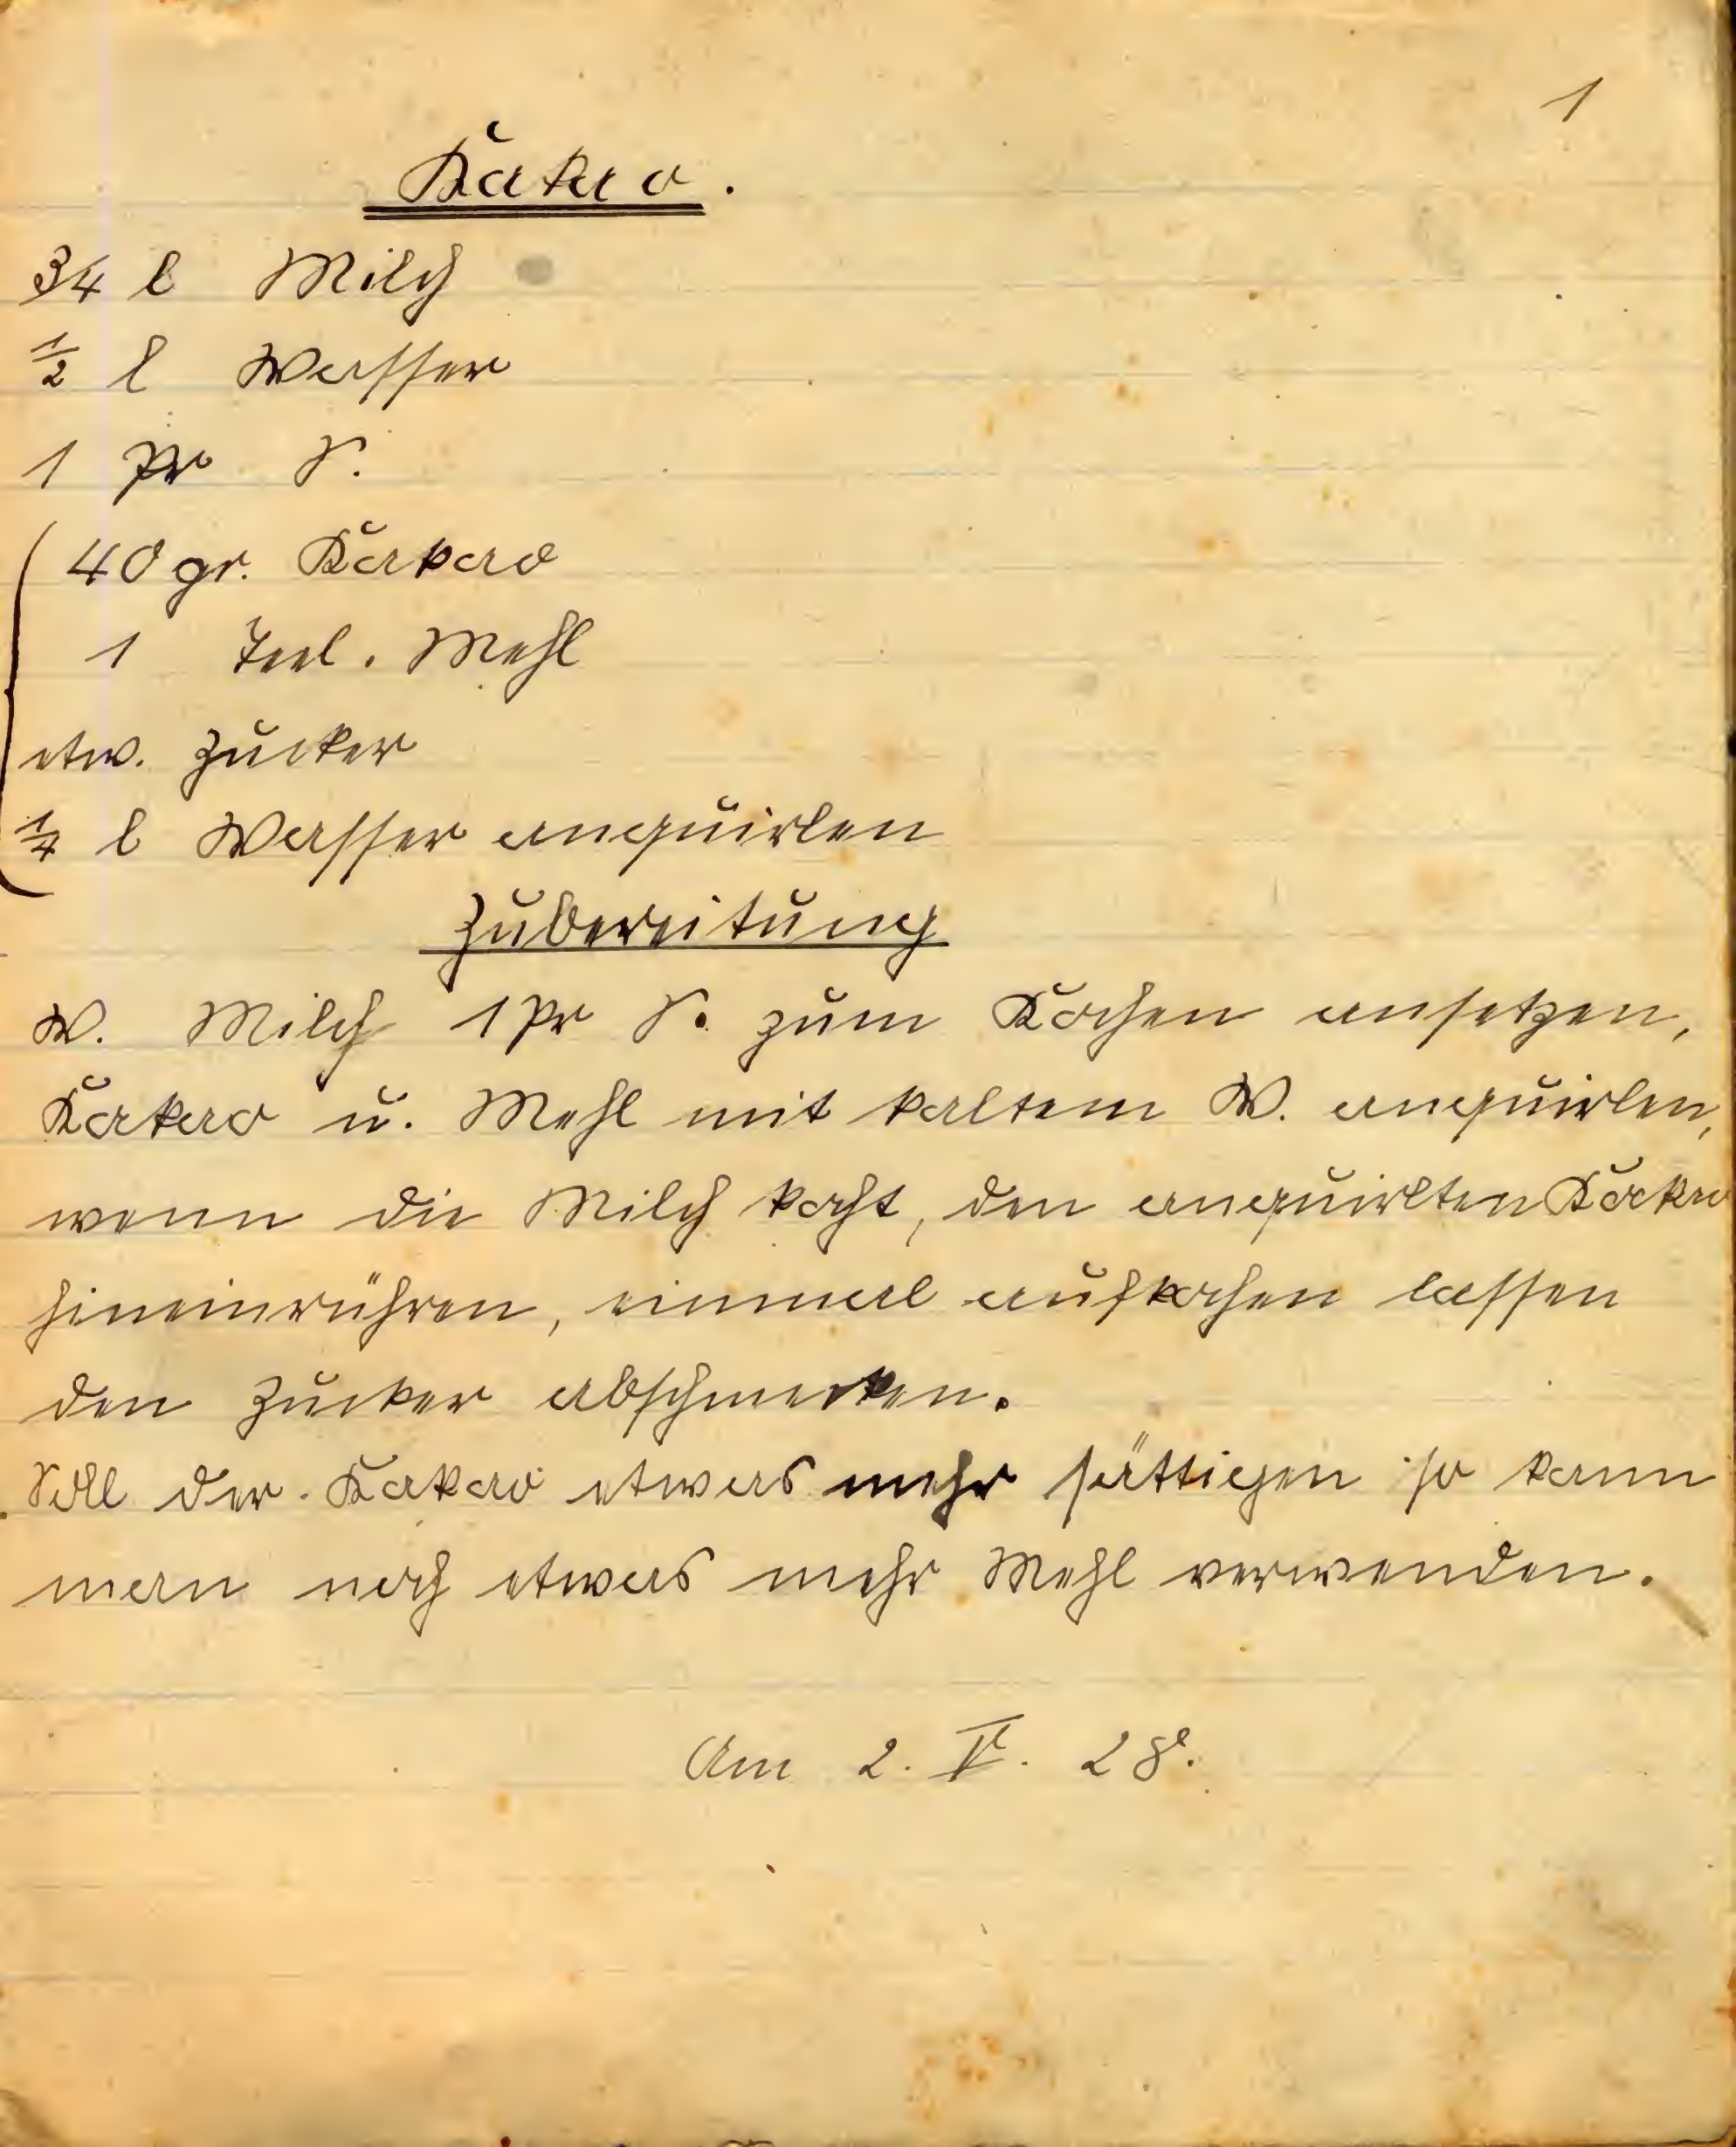 1
Kakao.
3/4 l Milch
1/2 l Wasser
1 Pr S.
40 gr. Kakao
1 Teel. Mehl
etw. Zucker
1/4 l Wasser anquirlen
Zubereitung
W. Milch 1 Pr S. zum Kochen ansetzen,
Kakao u. Mehl mit kaltem W. anquirlen,
wenn die Milch kocht, den anquirlten Kakao
hineinrühren, einmal aufkochen lassen
den Zucker abschmecken.
Soll der Kakao etwas mehr sättigen so kann
man noch etwas mehr Mehl verwenden.
Am 2. V. 28.